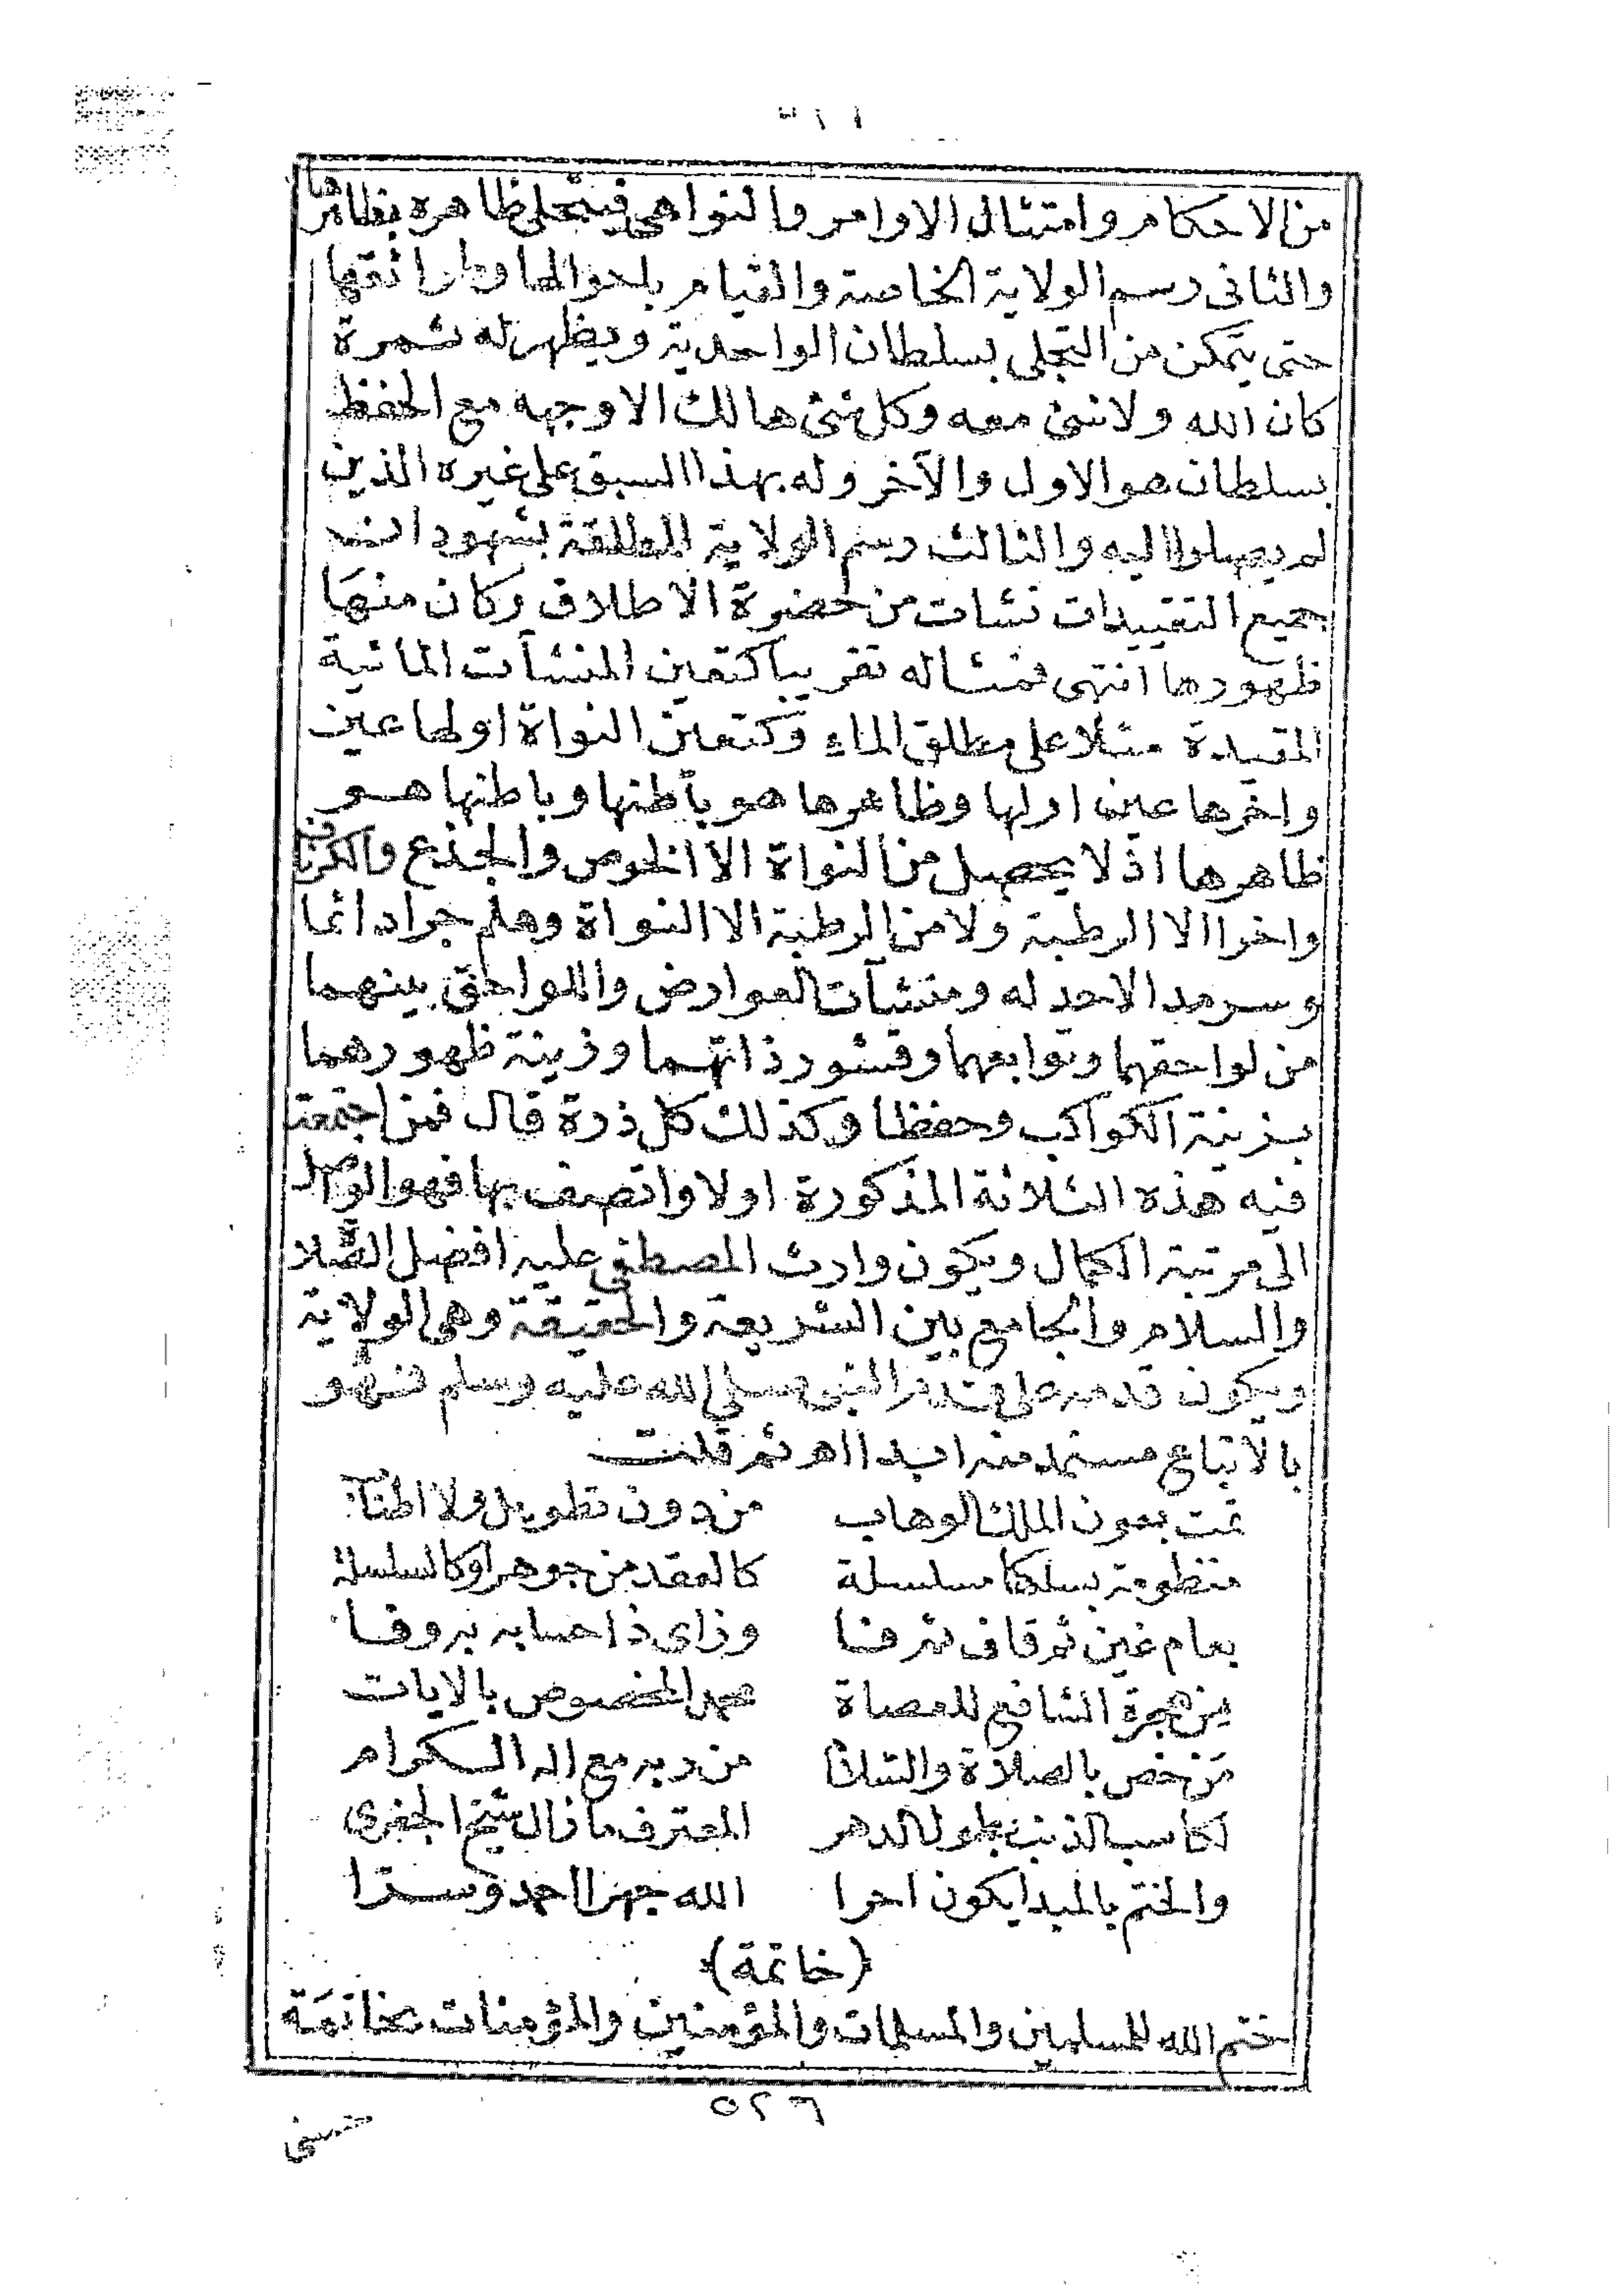 من الاحكام وامتثال الاوامر والنواهى فيتحلى ظاهره بظاهرها
والثانى رسم الولاية الخاصة والقيام باحوالها وطرائقها
حتى يتمكن من التجلى بسلطان الواحدية ويظهر له ثمرة
كان الله ولا شئ معه وكل شئ هالك الا وجهه مع الحفظ
بسلطان هو الاول والآخر وله بهذا السبق على غيره الذين
لم يصلوا اليه والثالث رسم الولاية المطلقة بشهود ان
جميع التقييدات نشات من حضرة الاطلاق وكان منها
ظهورها انتهى فمثاله تقريبا كتعين المنشآت المائية
المقيدة مثلا على مطلق الماء وكتعين النواة اولها عين
واخرها عين اولها وظاهرها هو باطنها وباطنها هو
ظاهرها اذ لا يحصل من النواة الا الخوص والجذع والكرناف
واخرا الا الرطبة ولا من الرطبة الا النواة وهلم جرا دائما
وسرمدا لاحد له ومنشآت العوارض واللواحق بينهما
من لواحقهما وتوابعهما وقشور ذاتهما وزينة ظهورهما
بزينة الكواكب وحفظا وكذلك كل ذرة قال فمن اجتمعت
فيه هذه الثلاثة المذكورة اولا واتصف بها فهو الواصل
الى مرتبة الكمال ويكون وارث المصطفى عليه افضل الصلاة
والسلام والجامع بين الشريعة والحقيقة وهى الولاية
ويكون قدمه على قدم النبى صلى الله عليه وسلم فهو
بالاتباع مستمد منه ابدا اهـ ثم قلت
تمت بعون الملك الوهاب من دون تطويل ولا اطناب
منظومة بسلكها مسلسلة كالعقد من جوهر او كالسلسلة
بعام غين ثم قاف شرفا وزاى ذا حسابه به وفا
من هجرة الشافع للعصاة محمد المخصوص بالايات
من خص بالصلاة والسلام من ربه مع اله الكرام
لكاسب الذنب بطول الدهر المعترف ما زال شيخ الجفرى
والختم بالمبدا يكون احرا الله جهرا احمد وسرا
(خاتمة)
ختم الله للمسلمين والمسلمات والمؤمنين والمؤمنات بخاتمة